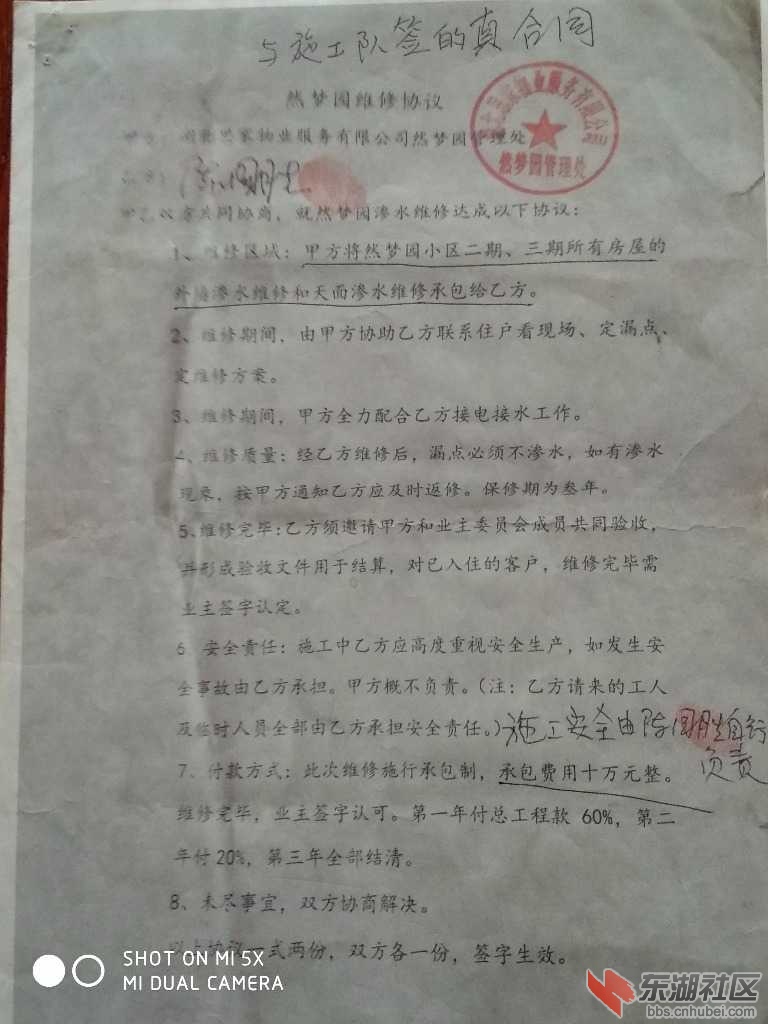 与施工队签的真合同
然梦园维修协议
物业服务有限公司然梦园管理处
业服务有限公司
然梦园管理处
共同协商，就然梦园渗水维修达成以下协议：
1、维修区域：甲方将然梦园小区二期、三期所有房屋的
外墙渗水维修和天面渗水维修承包给乙方。
2、维修期间，由甲方协助乙方联系住户看现场、定漏点、
定维修方案。
3、维修期间，甲方全力配合乙方接电接水工作。
4、维修质量：经乙方维修后，漏点必须不渗水，如有渗水
现象，按甲方通知乙方应及时返修。保修期为叁年。
5、维修完毕：乙方须邀请甲方和业主委员会成员共同验收，
并形成验收文件用于结算，对已入住的客户，维修完毕需
业主签字认定。
6 安全责任：施工中乙方应高度重视安全生产，如发生安
全事故由乙方承担。甲方概不负责。（注：乙方请来的工人
及临时人员全部由乙方承担安全责任。）施工安全由陈国胜自行
负责
7、付款方式：此次维修施行承包制，承包费用十万元整。
维修完毕，业主签字认可。第一年付总工程款 60%，第二
年付 20%，第三年全部结清。
8、未尽事宜，双方协商解决。
以上协议一式两份，双方各一份，签字生效。
SHOT ON MI 5X
MI DUAL CAMERA
东湖社区
bbs.cnhubei.com